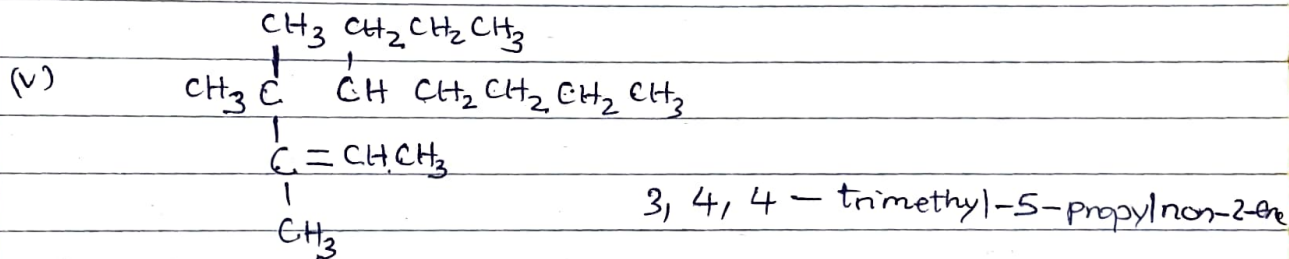 CH3 CH2 CH2 CH3
(v) CH3 C CH CH2 CH2 CH2 CH3
C = CH.CH3
3, 4, 4 - trimethyl-5-propylnon-2-ene
CH3